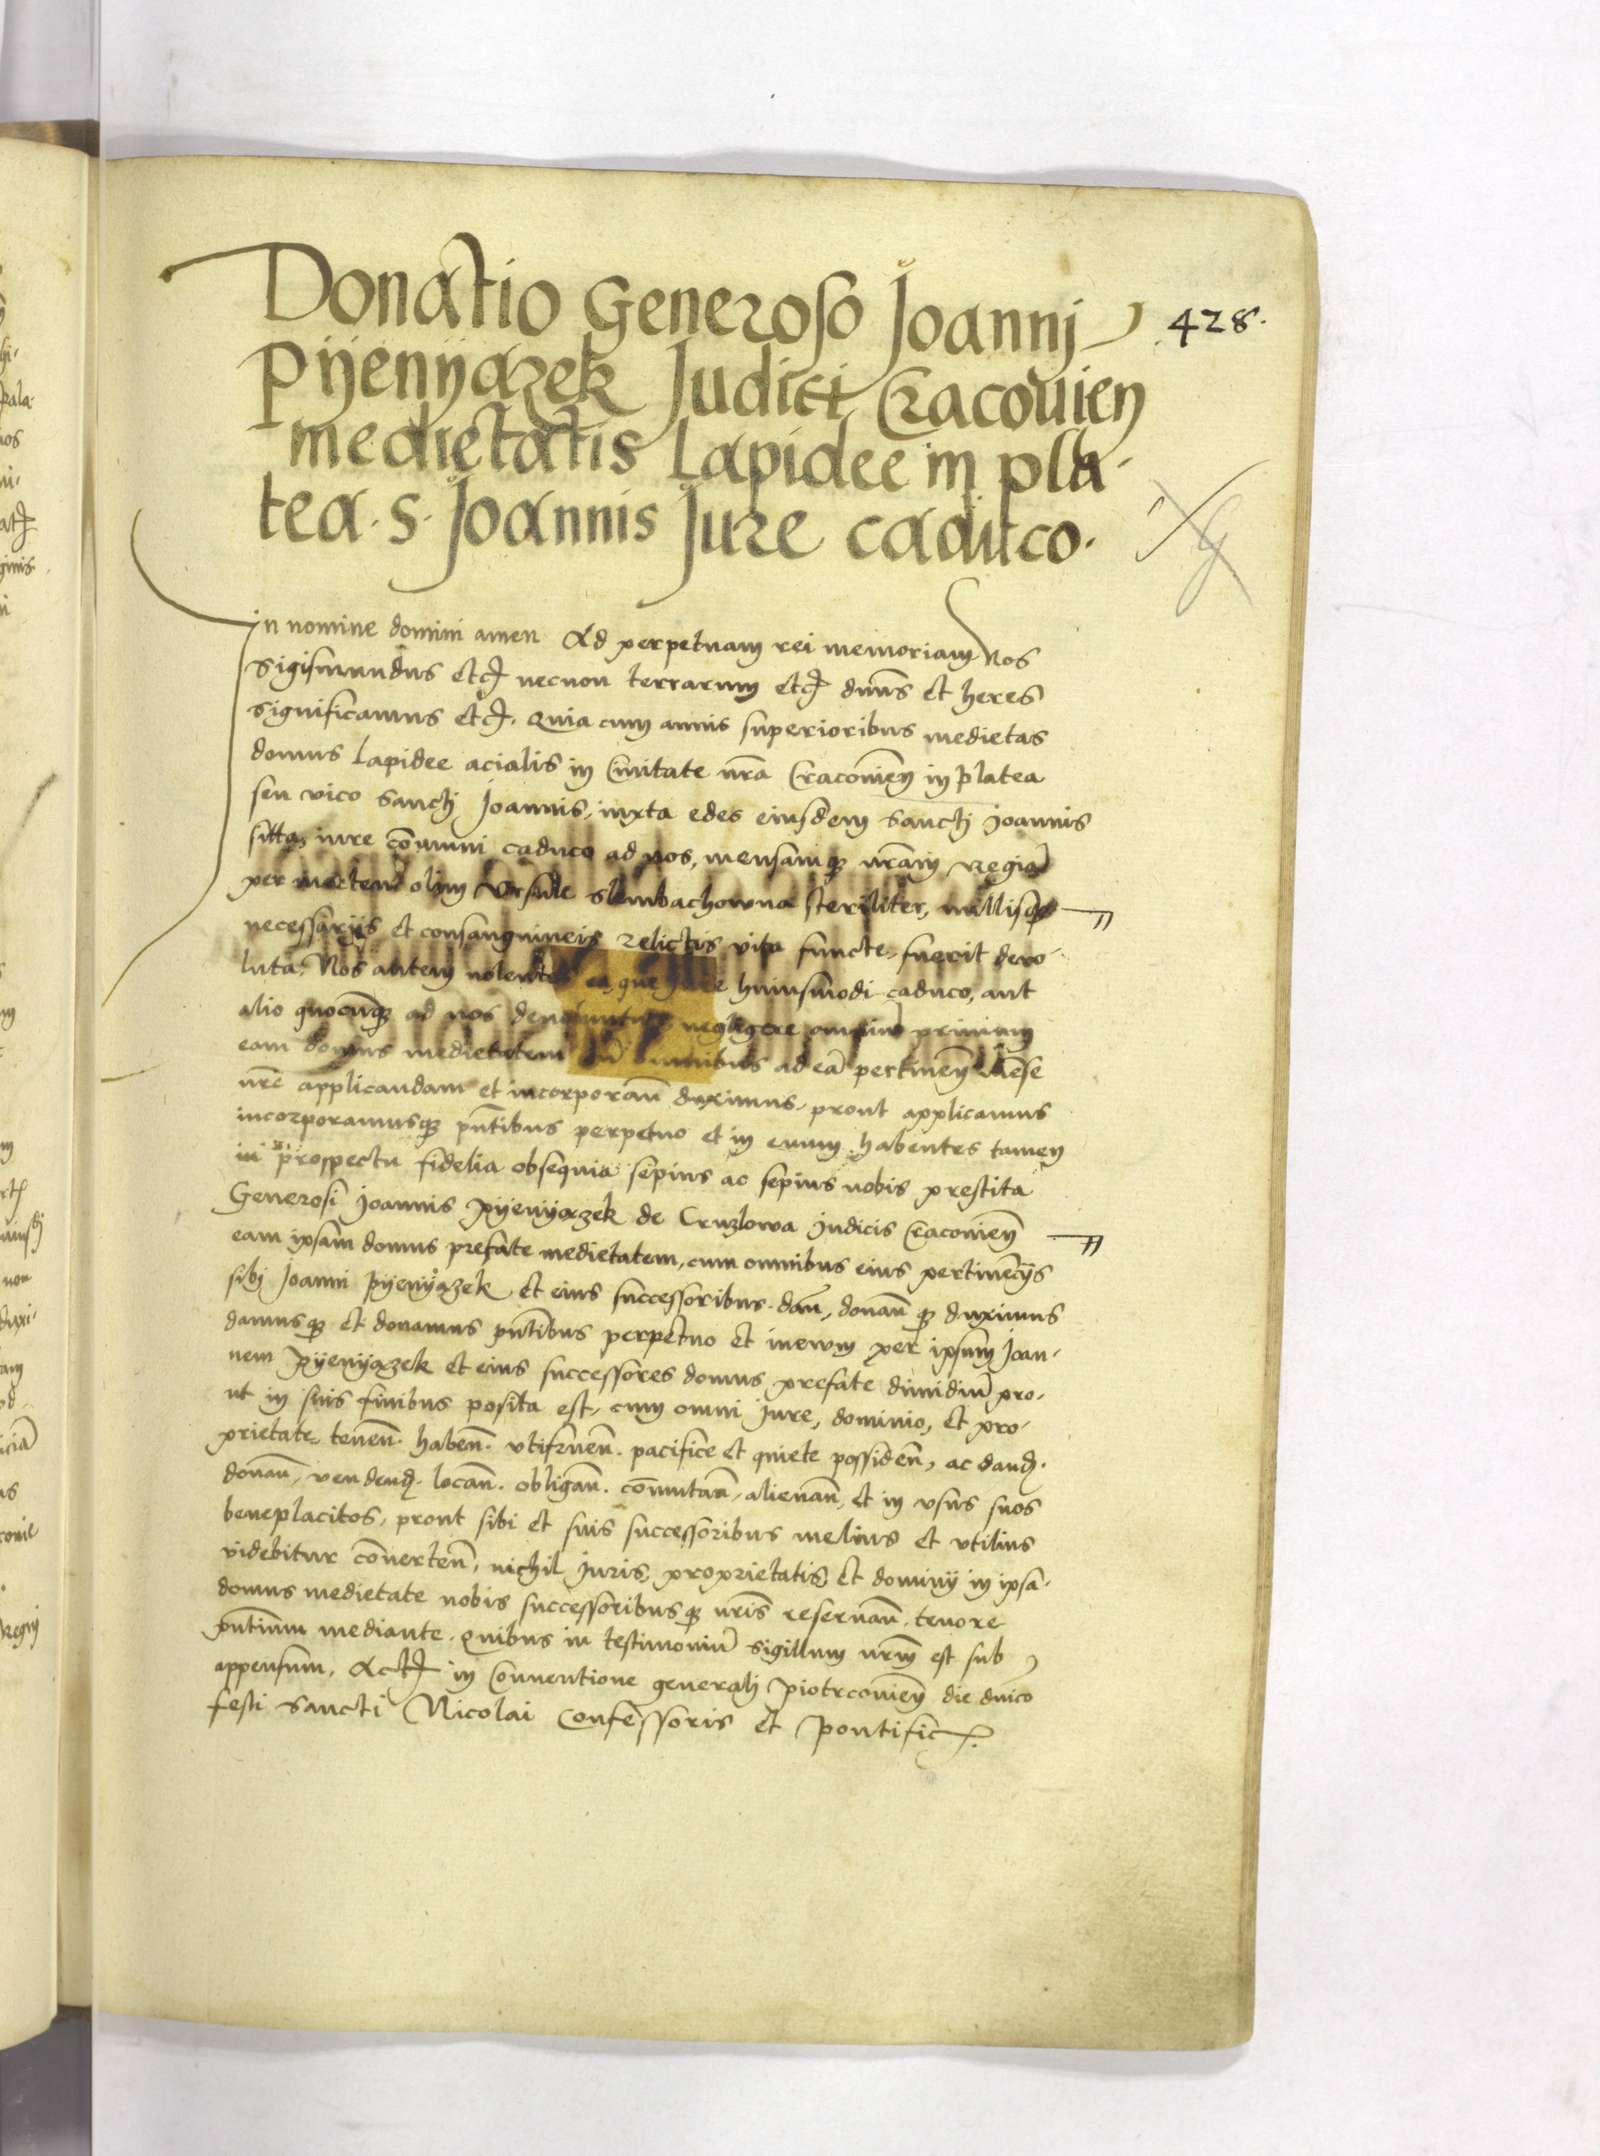 Donatio Generoso Joannj
428.
Pÿenÿazek Judici Cracouien
medietatis Lapidee in pla-
tea S. Joannis Jure caduco.
In nomine domini amen Ad perpetuam rei memoriam Nos
Sigismundus etc necnon terrarum etc dnūs et heres
Significamus etc. Quia cum annis superioribus medietas
domus Lapidee acialis in Ciuitate nrā Cracouien in platea
seu vico Sanctj Joannis, iuxta edes eiusdem Sanctj Joannis
sitta, iure cōmuni caduco ad nos, mensamqȝ nrām Regiā
per mortem olim Vrsule Slembachowna steriliter, nullisqȝ
necessarijs et consanguineis relictis vita functe, fuerit deuo-
luta, Nos autem nolentes ea, que iure huiusmodi caduco, aut
alio quocūqȝ ad nos deuoluuntur negligere omnino primum
eam domus medietatem cū omnibus ad eā pertineñ mēse
nrē applicandam et incorporañ duximus, prout applicamus
incorporamusqȝ pñtibus perpetuo et in euum habentes tamen
in prospectu fidelia obsequia sepius ac sepius nobis prestita
Generosi Joannis Pÿenÿazek de Cruzlowa Judicis Cracouieñ
eam ipsam domus prefate medietatem, cum omnibus eius pertinēcijs
sibj Joanni Pÿenÿazek et eius successoribus dañ, donañqȝ duximus
damusqȝ et donamus pñtibus perpetuo et ineuum per ipsum Joan-
nem Pÿenÿazek et eius successores domus prefate dimidiū pro-
ut in suis finibus posita est, cum omni Jure, dominio, et pro-
prietate, teneñ. habeñ. vtifrueñ. pacifice et quiete possideñ, ac dand.
donañ, vendend. locañ. obligañ. cōmutañ, alienañ, et in vsus suos
beneplacitos, prout sibi et suis successoribus melius et vtilius
videbitur cōuerteñ, nichil Juris, proprietatis, et dominij in ipsa
domus medietate nobis successoribusqȝ nrīs reseruañ, tenore
pñtium mediante. Quibus in testimoniū sigillum nrm̄ est sub
appensum. Act in Conuentione generalj Piotrcouien die dnīco
festi Sancti Nicolai Confessoris et Pontific.